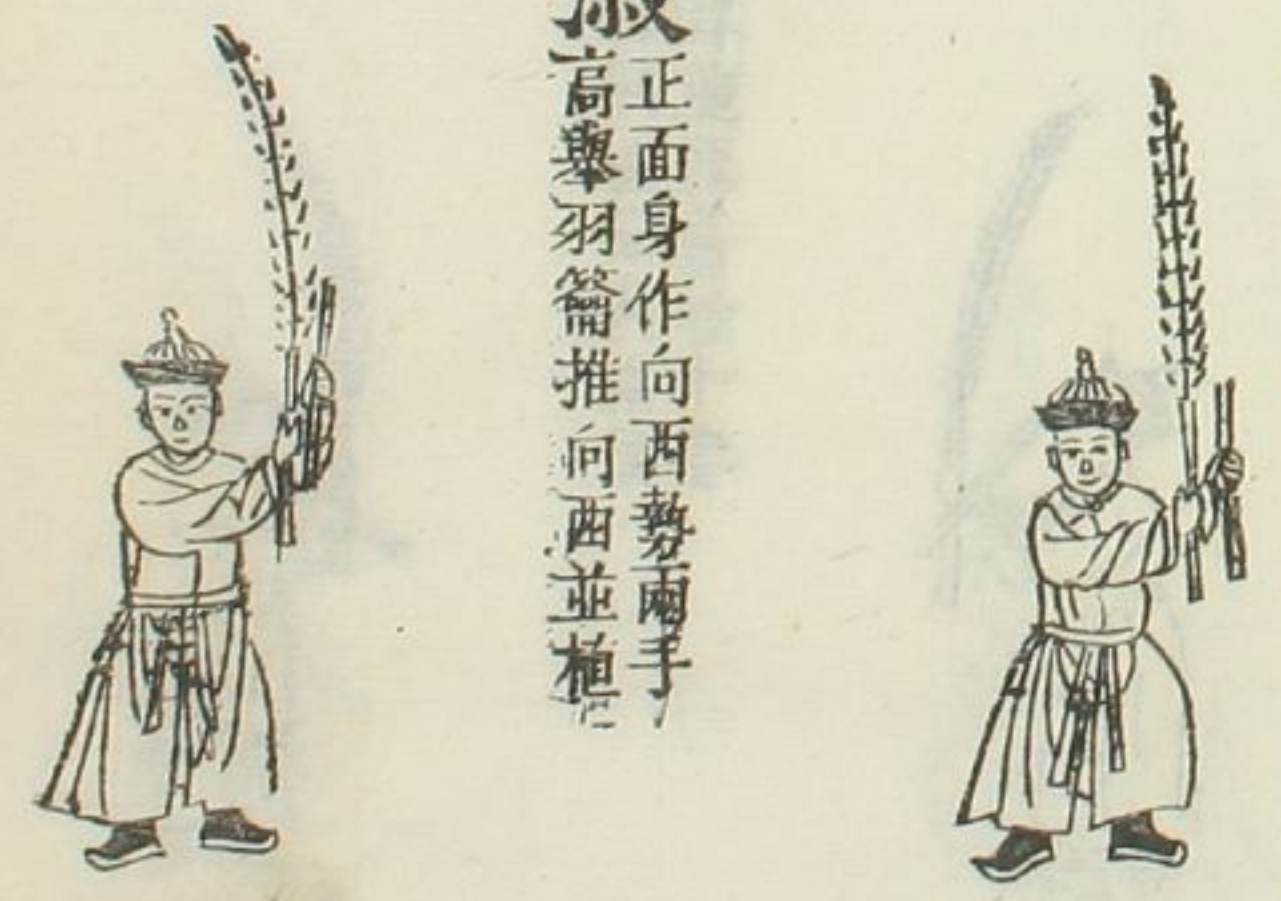 正面身作向西勢兩手
高舉羽籥推向西並植